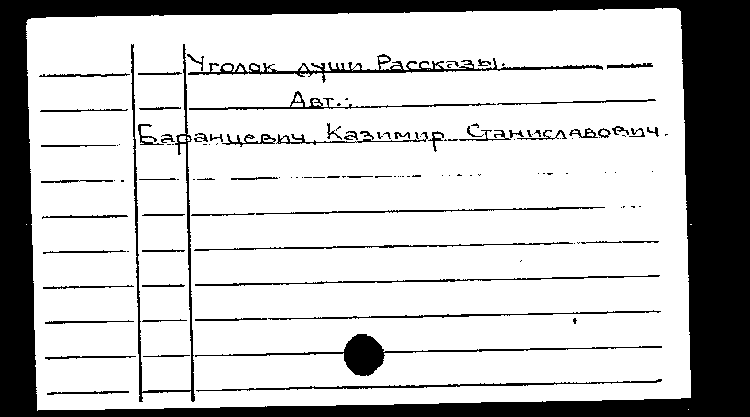 Уголок души. Рассказы.
Авт.:
Баранцевич, Казимир Станиславович.